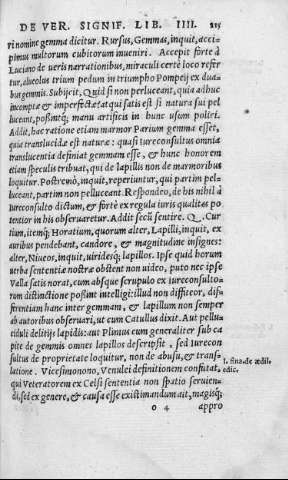 DE VER. SIGNIF. LIB. IIII. 215
ri nomine gemma dicitur. Rursus, Gemmas, inquit, acci-
pimus multorum cubitorum inueniri. Accepit forte à
Luciano de ueris narrationibus, miraculi certè loco refer
tur, alueolus trium pedum in triumpho Pompeij ex dua
bus gemmis. Subijcit, Quid si non perluceant, quia adhuc
incomptæ & imperfectæ? at qui satis est si natura sui pel
luceant, possintq; manu artificis in hunc usum poliri.
Addit, hac ratione etiam marmor Parium gemma esset,
quia translucidæ est naturæ: quasi iureconsultus omnia
translucentia definiat gemmam esse, & hunc honorem
etiam speculis tribuat, qui de lapillis non de marmoribus
loquitur. Postremò, inquit, reperiuntur, qui partim pel-
luceant, partim non pelluceant. Respondeo, de his nihil à
iureconsulto dictum, & fortè ex regula iuris qualitas po
tentior in his obseruaretur. Addit secū sentire. Q. Cur
tium, itemq; Horatium, quorum alter, Lapilli, inquit, ex
auribus pendebant, candore, & magnitudine insignes:
alter, Niueos, inquit, uiridesq; lapillos. Ipse quid horum
uerba sententiæ nostræ obstent non uideo, puto nec ipse
Valla satis norat, cum absque scrupulo ex iureconsulto-
rum distinctione possint intelligi: illud non diffiteor, dif-
ferentiam hanc inter gemmam, & lapillum non semper
ab autoribus obseruari, ut cum Catullus dixit. Aut pellu-
cidule delitijs lapidis: aut Plinius cum generaliter sub ca
pite de gemmis omnes lapillos descripsit, sed Iurecon
sultus de proprietate loquitur, non de abusu, & trans-
latione. Vicesimonono, Venulei definitionem confutat,
l. fina. de ædil.
edic.
qui Veteratorem ex Celsi sententia non spatio seruien-
di, sed ex genere, & causa esse existimandum ait, magisq;
o 4 appro